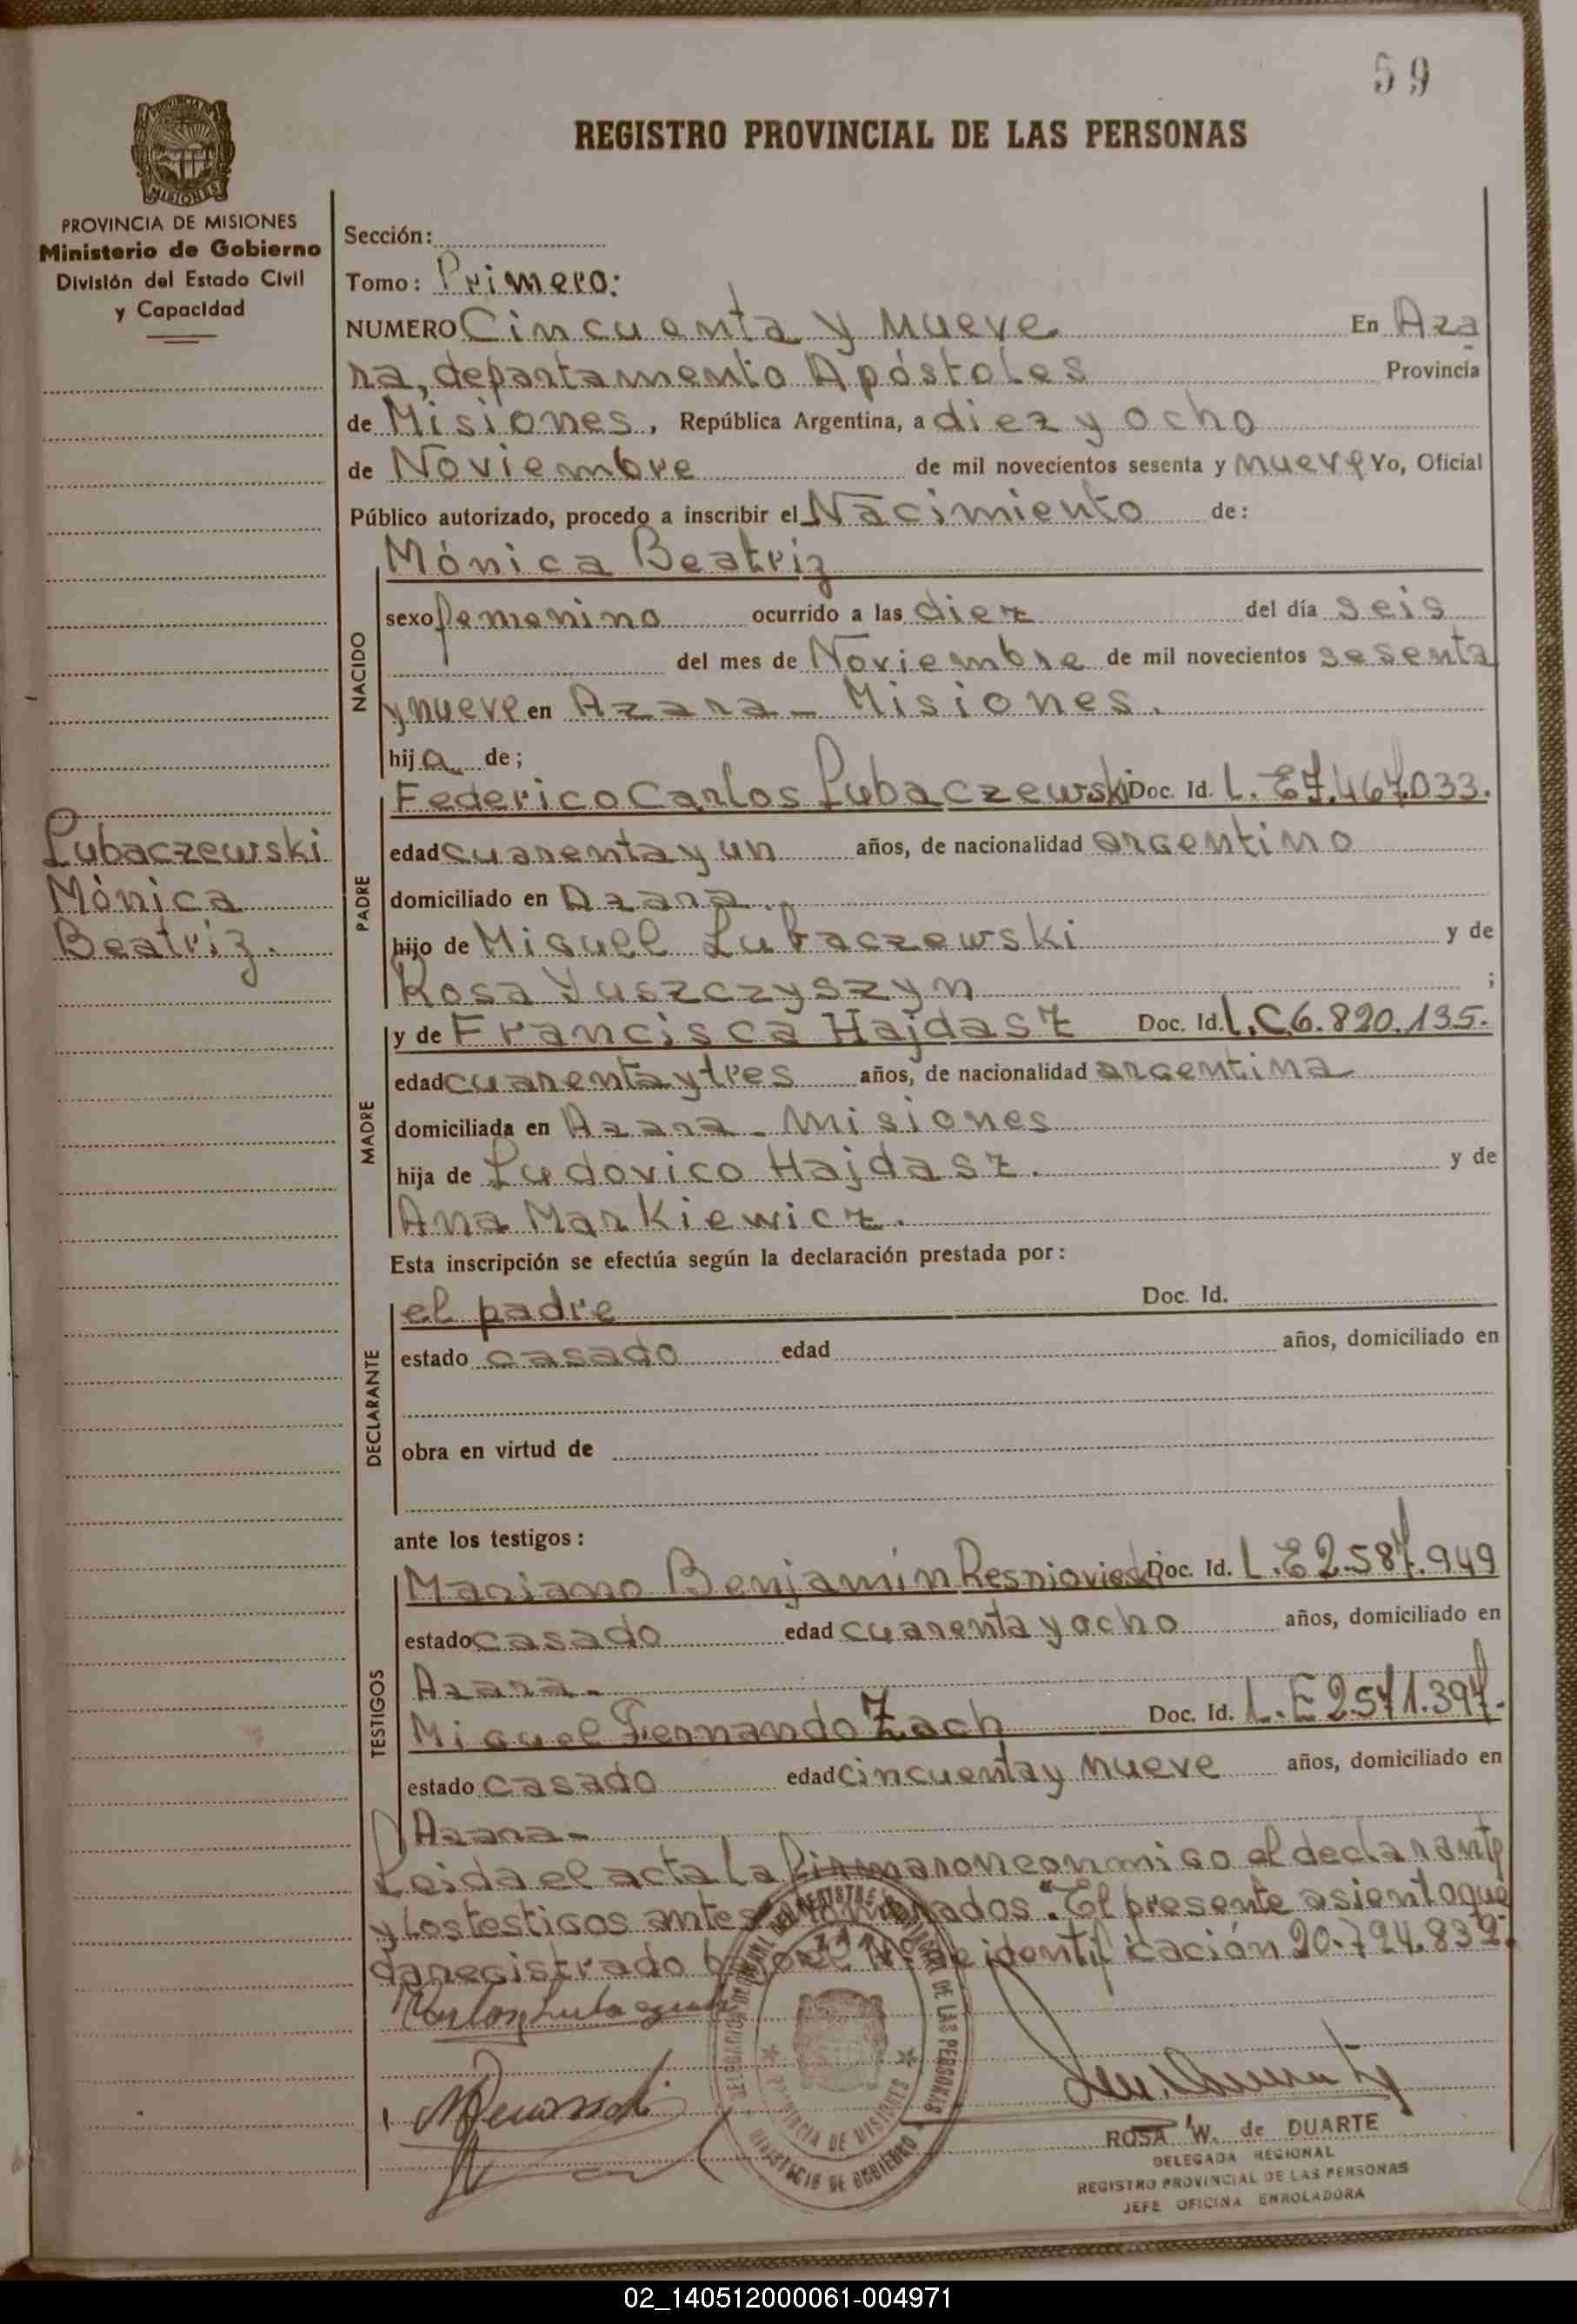 59
REGISTRO PROVINCIAL DE LAS PERSONAS
PROVINCIA DE MISIONES
Ministerio de Gobierno
División del Estado Civil
y Capacidad
Sección:
Tomo: Primero:
NUMERO Cincuenta y Nueve En Aza
ra, departamento Apóstoles Provincia
de Misiones, República Argentina, a diez y ocho
de Noviembre de mil novecientos sesenta y nueve Yo, Oficial
Público autorizado, procedo a inscribir el Nacimiento de:
Mónica Beatriz
sexo femenino ocurrido a las diez del día seis
del mes de Noviembre de mil novecientos sesenta
y nueve en Azara - Misiones.
hija de;
NACIDO
Federico Carlos Lubaczewski Doc. Id. L.E 7.467.033.
edad cuarenta y un años, de nacionalidad argentino
domiciliado en Azara.
hijo de Miguel Lubaczewski y de
Rosa Yuszczyszyn ;
PADRE
Lubaczewski
Mónica
Beatriz.
y de Francisca Hajdasz Doc. Id. L.C 6.820.135.
edad cuarenta y tres años, de nacionalidad argentina
domiciliada en Azara - Misiones
hija de Ludovico Hajdasz. y de
Ana Markiewicz.
MADRE
Esta inscripción se efectúa según la declaración prestada por:
el padre Doc. Id.
estado casado edad años, domiciliado en
obra en virtud de
DECLARANTE
ante los testigos:
Mariano Benjamín Doc. Id. L.E 2.587.949
estado casado edad cuarenta y ocho años, domiciliado en
Azara.
Miguel Fernando Zach Doc. Id. L.E 2571.397.
estado casado edad cincuenta y nueve años, domiciliado en
Azara -
TESTIGOS
Leida el acta la firmaron conmigo el declarante
y los testigos antes mencionados. "El presente asiento que
da registrado bajo el Nº de identificación 20.794.839.
PROVINCIA DE MISIONES
MINISTERIO DE GOBIERNO
DE LAS PERSONAS
ROSA W. de DUARTE
DELEGADA REGIONAL
REGISTRO PROVINCIAL DE LAS PERSONAS
JEFE OFICINA ENROLADORA
02_140512000061-004971